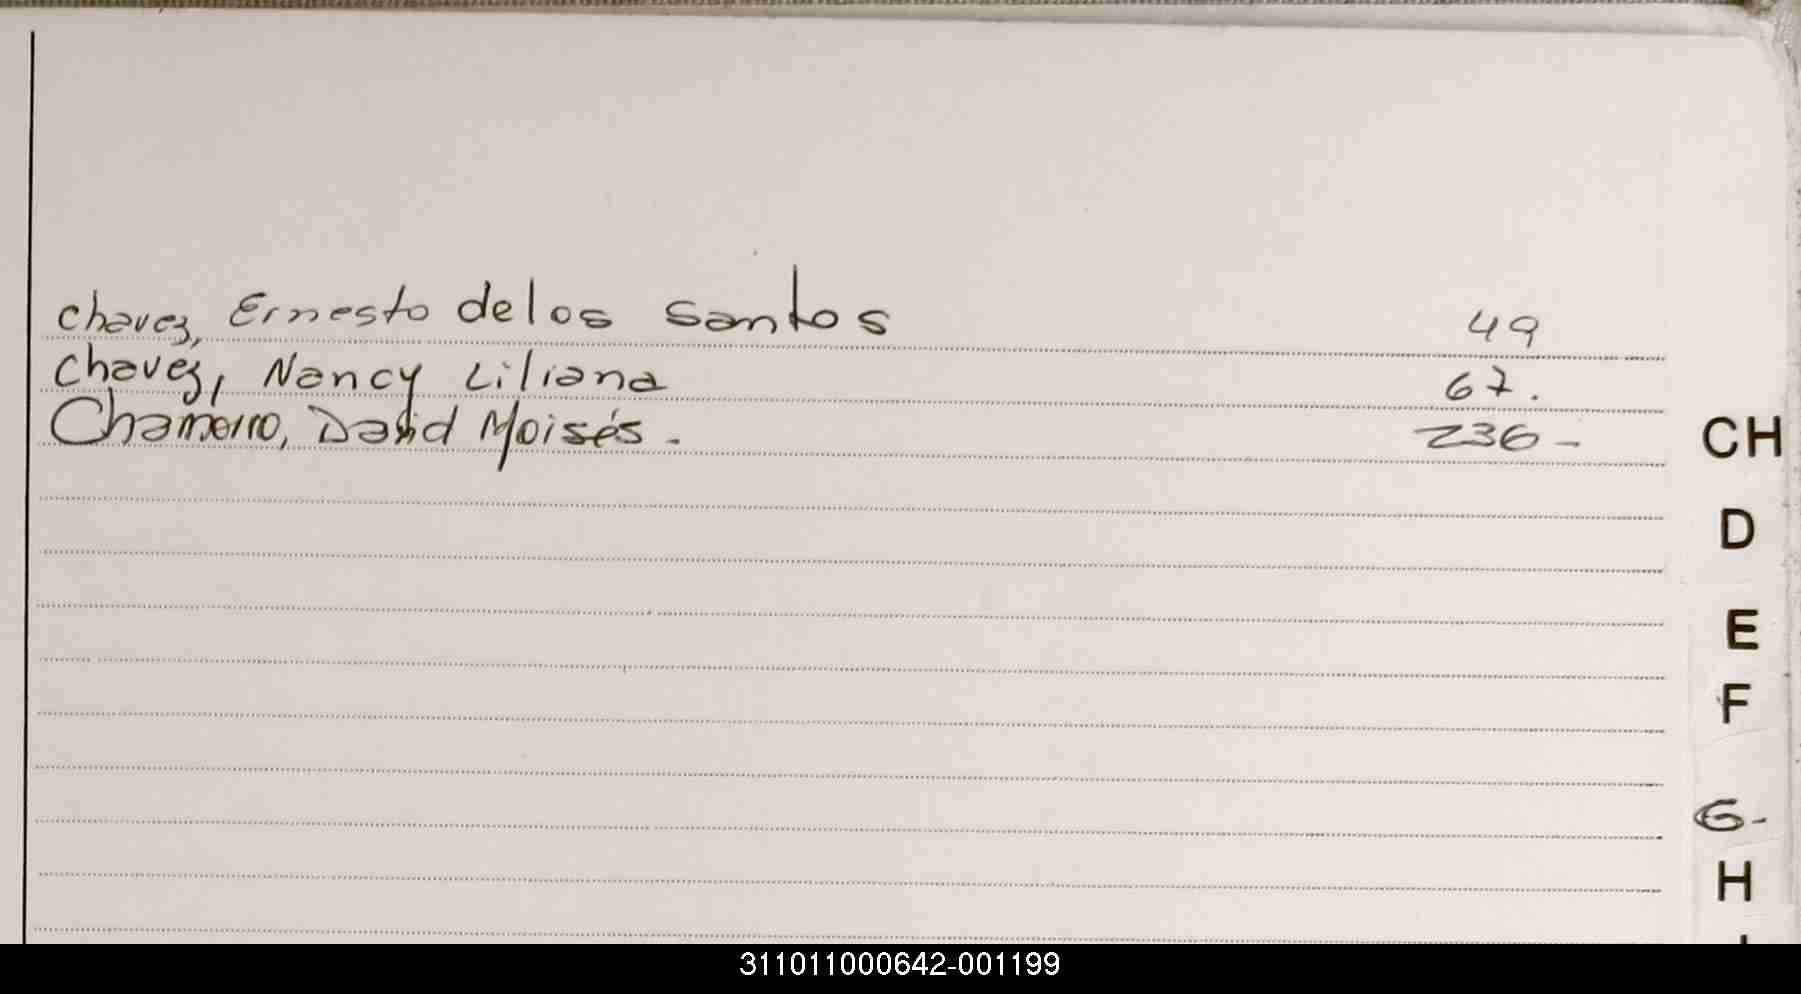 Chavez, Ernesto de los Santos 49
Chavez, Nancy Liliana 67.
Chamorro, David Moisés. 236-
CH
D
E
F
G-
H
311011000642-001199